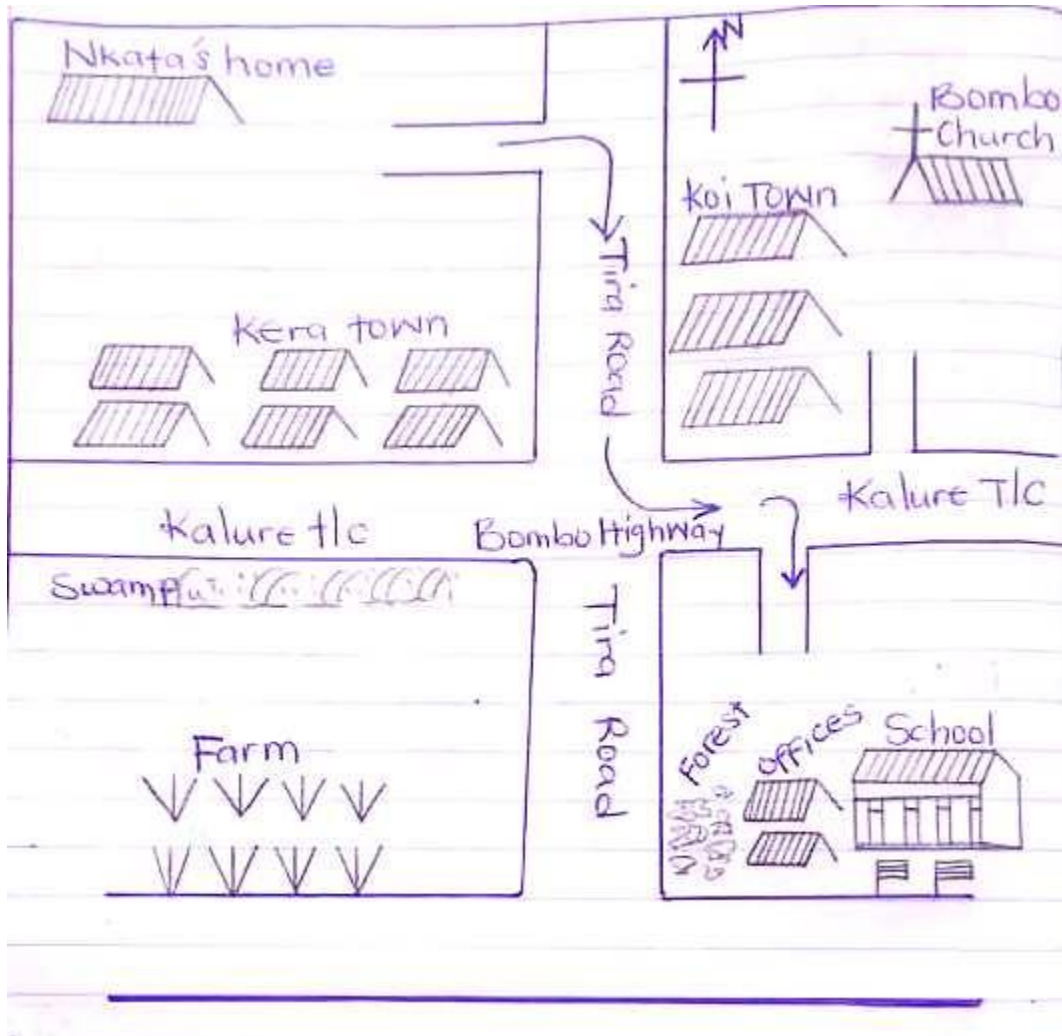 Nkata's home
N
Bombo
Church
Koi Town
Tira Road
Kera town
Kalure T/C
Kalure t/c
Bombo Highway
Swamp
Tira Road
Farm
Forest
Offices
School